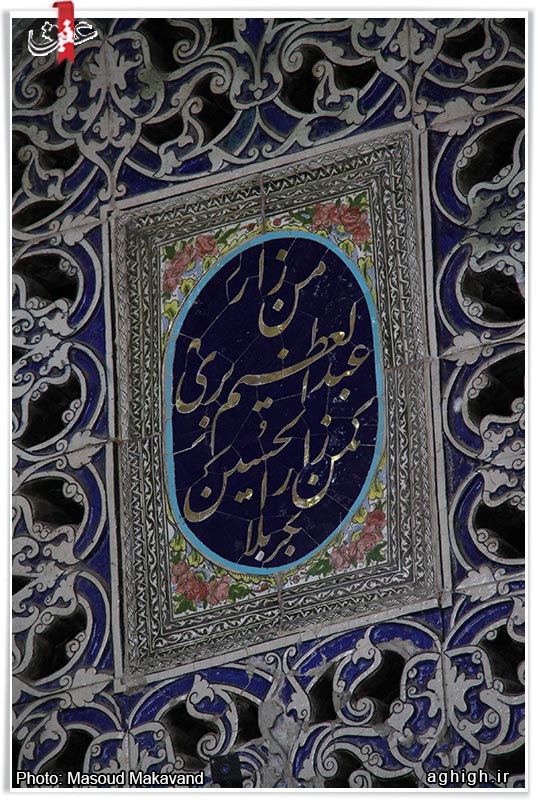 عقیق
من زار
عبدالعظیم بری
کمن زار الحسین
بکربلا
Photo: Masoud Makavand
aghigh.ir